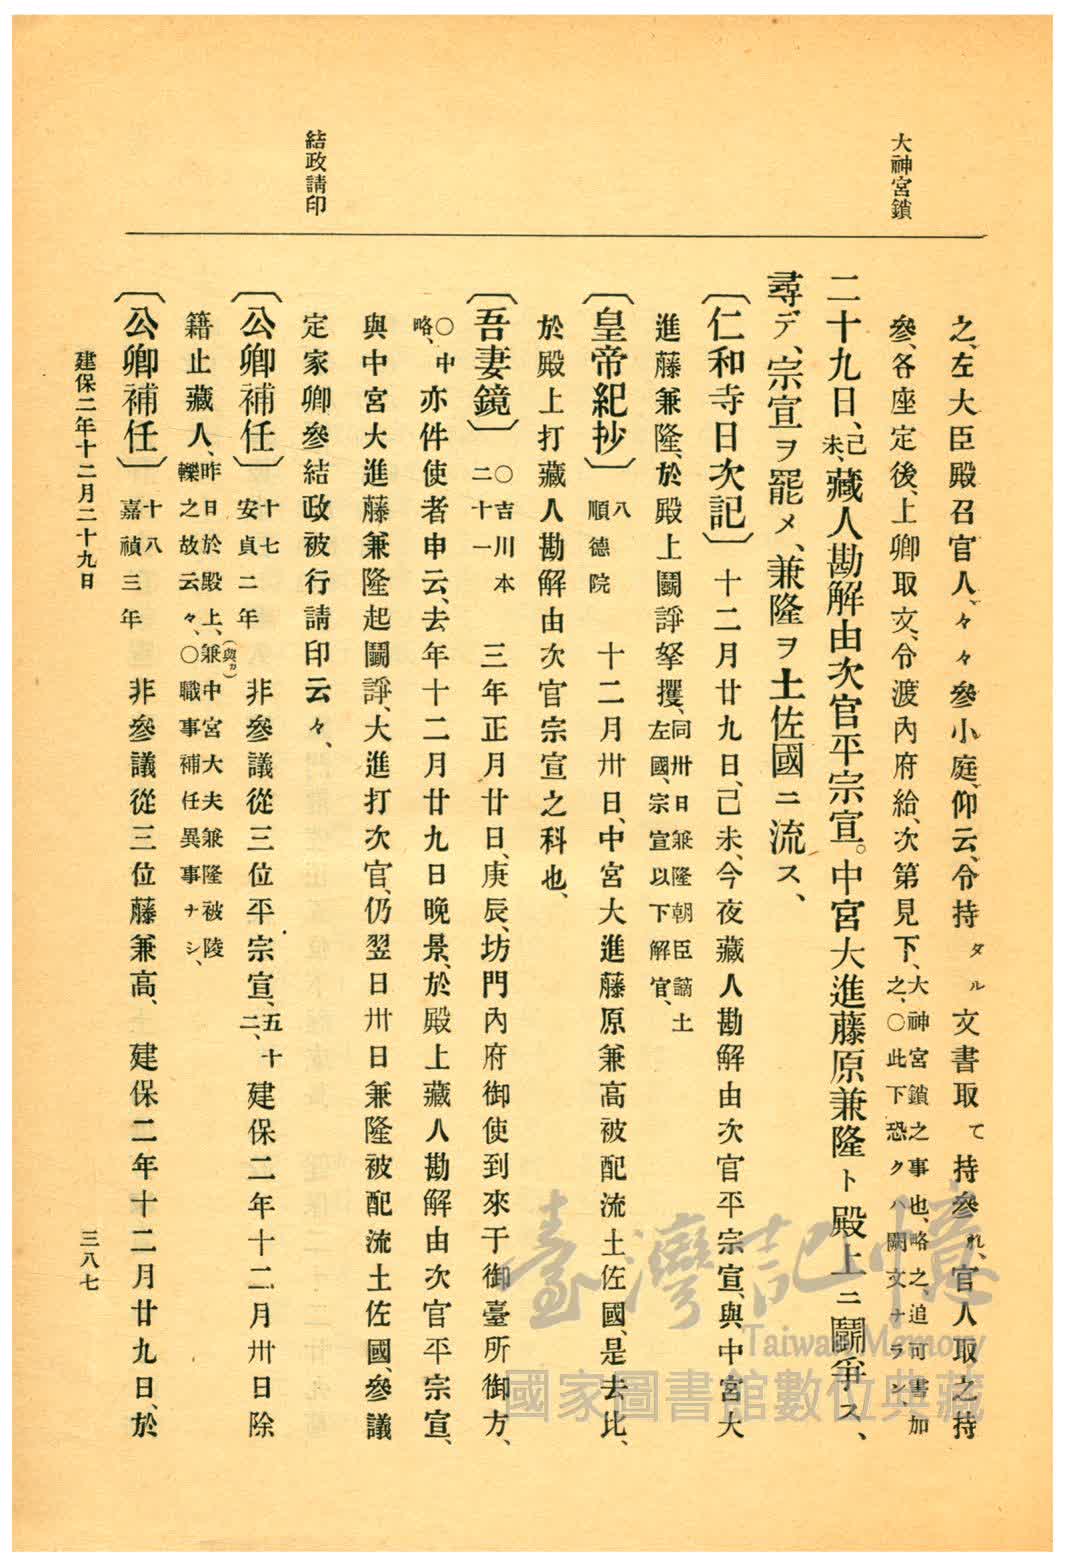 大神宮鎖
結政請印
之、左大臣殿召官人、々々參小庭、仰云、令持タル文書取て持參れ、官人取之持
參、各座定後、上卿取文、令渡內府給、次第見下、大神宮鎖之事也、略之、追可書加之、〇此下恐クハ闕文ナラン、
二十九日、己未、藏人勘解由次官平宗宣。中宮大進藤原兼隆ト殿上ニ鬪爭ス、
尋デ、宗宣ヲ罷メ、兼隆ヲ土佐國ニ流ス、
〔仁和寺日次記〕十二月廿九日、己未、今夜藏人勘解由次官平宗宣、與中宮大
進藤兼隆、於殿上鬪諍拏攫、同卅日兼隆朝臣謫土左國、宗宣以下解官、
〔皇帝紀抄〕八順德院 十二月卅日、中宮大進藤原兼高被配流土佐國、是去比、
於殿上打藏人勘解由次官宗宣之科也、
〔吾妻鏡〕〇吉川本二十一 三年正月廿日、庚辰、坊門內府御使到來于御臺所御方、
〇中略、亦件使者申云、去年十二月廿九日晚景、於殿上藏人勘解由次官平宗宣、
與中宮大進藤兼隆起鬪諍、大進打次官、仍翌日卅日兼隆被配流土佐國、參議
定家卿參結政被行請印云々、
〔公卿補任〕十七安貞二年 非參議從三位平宗宣、五十二、建保二年十二月卅日除
籍止藏人、昨日於殿上、兼(與カ)中宮大夫兼隆被陵轢之故云々、〇職事補任異事ナシ、
〔公卿補任〕十八嘉禎三年 非參議從三位藤兼高、建保二年十二月廿九日、於
建保二年十二月二十九日
三八七
臺灣記憶
Taiwan Memory
國家圖書館數位典藏